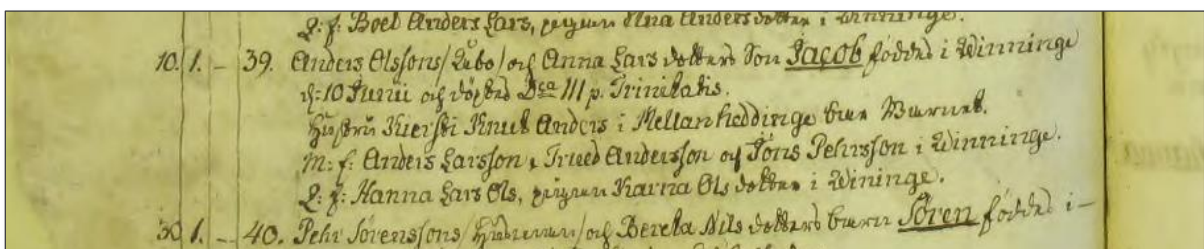 Q: f: Boel Anders Lars, pigan Elna Anders dotter i Winninge.
10. 1. - 39. Anders Olssons /Åbo/ och Anna Lars dotters Son Jacob föddes i Winninge
d: 10 Junii och döptes Dca III p. Trinitatis.
Hustru Kiersti Knut Anders i Mellanheddinge bar Barnet.
M: f: Anders Larsson, Trued Andersson och Jöns Pehrsson i Winninge.
Q: f: Hanna Lars Ols, pigan Karna Ols dotter i Wininge.
30 1. - 40. Pehr Sörenssons /Husman/ och Bereta Nils dotters barn Sören föddes i -